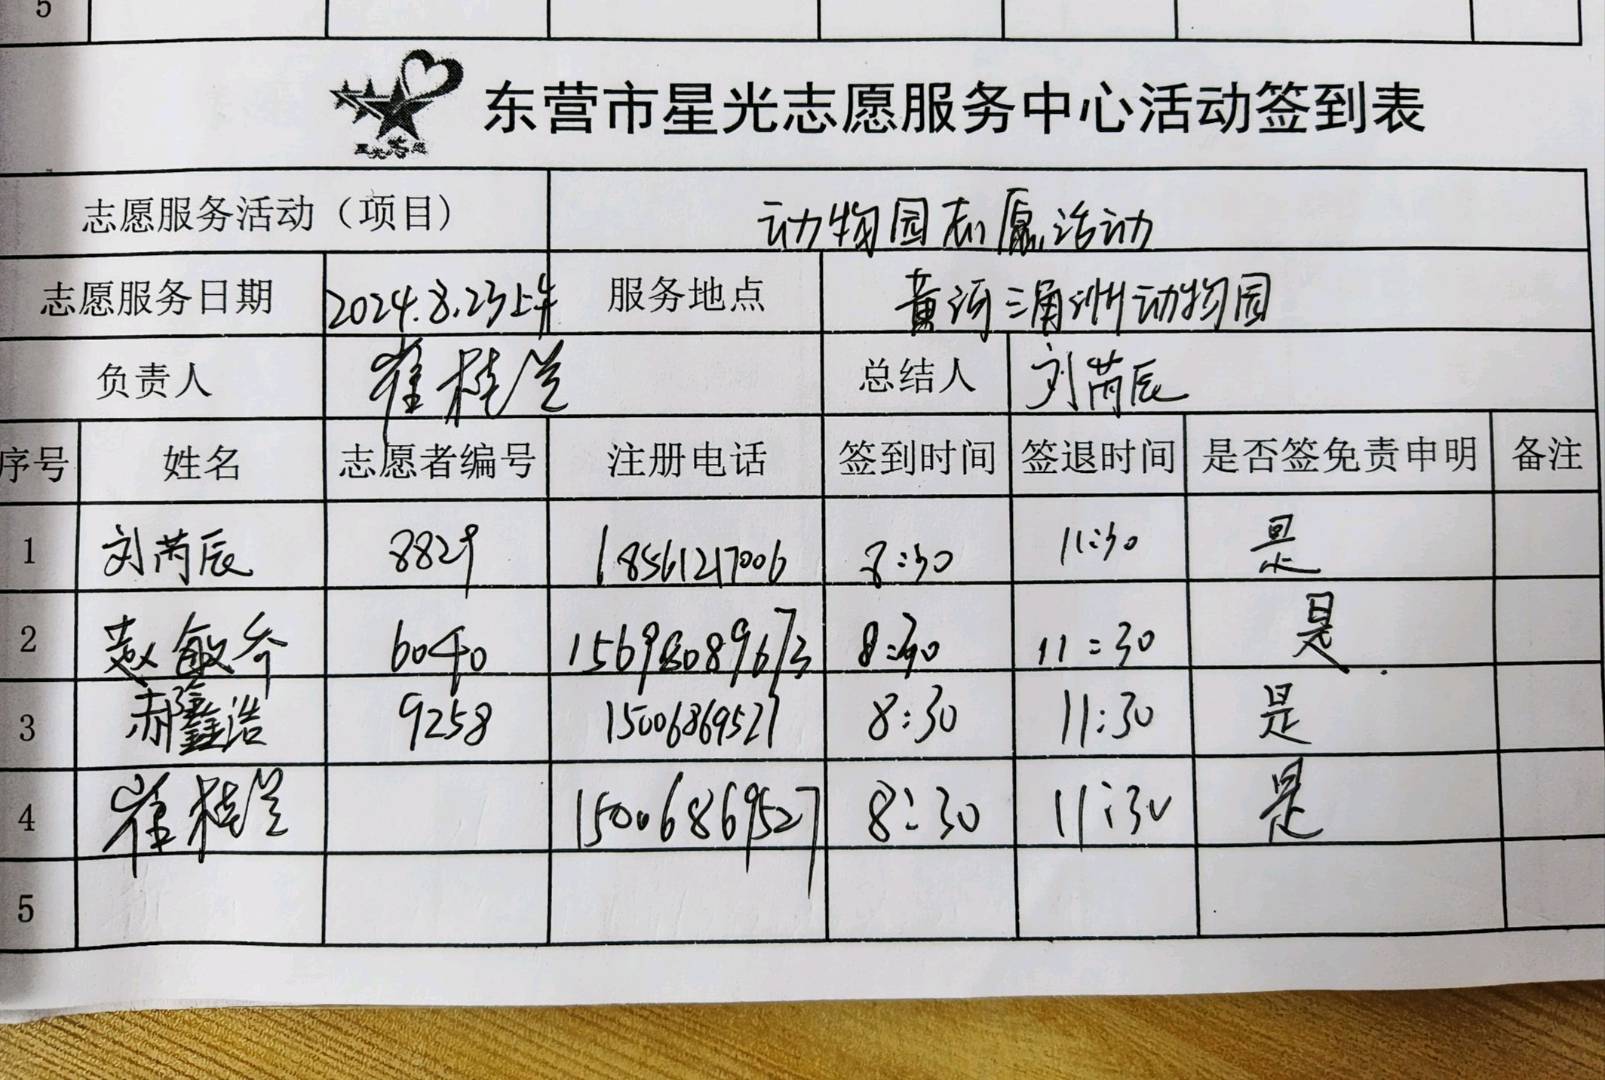 5
星光志愿
东营市星光志愿服务中心活动签到表
志愿服务活动（项目） 动物园志愿活动
志愿服务日期 2024.8.23上午 服务地点 黄河三角洲动物园
负责人 崔桂兰 总结人 刘芮辰
序号 姓名 志愿者编号 注册电话 签到时间 签退时间 是否签免责申明 备注
1 刘芮辰 8829 18561217006 8:30 11:30 是
2 赵敏 6040 8:30 11:30 是
3 郝鑫浩 9258 15006869527 8:30 11:30 是
4 崔桂兰 15006869527 8:30 11:30 是
5